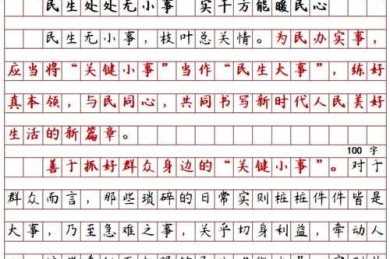 民生处处无小事 实干方能暖民心
民生无小事，枝叶总关情。为民办实事，
应当将“关键小事”当作“民生大事”，练好
真本领，与民同心，共同书写新时代人民美好
生活的新篇章。
100 字
善于抓好群众身边的“关键小事”。对于
群众而言，那些琐碎的日常实则桩桩件件皆是
大事，乃至急难之事，关乎切身利益，牵动人